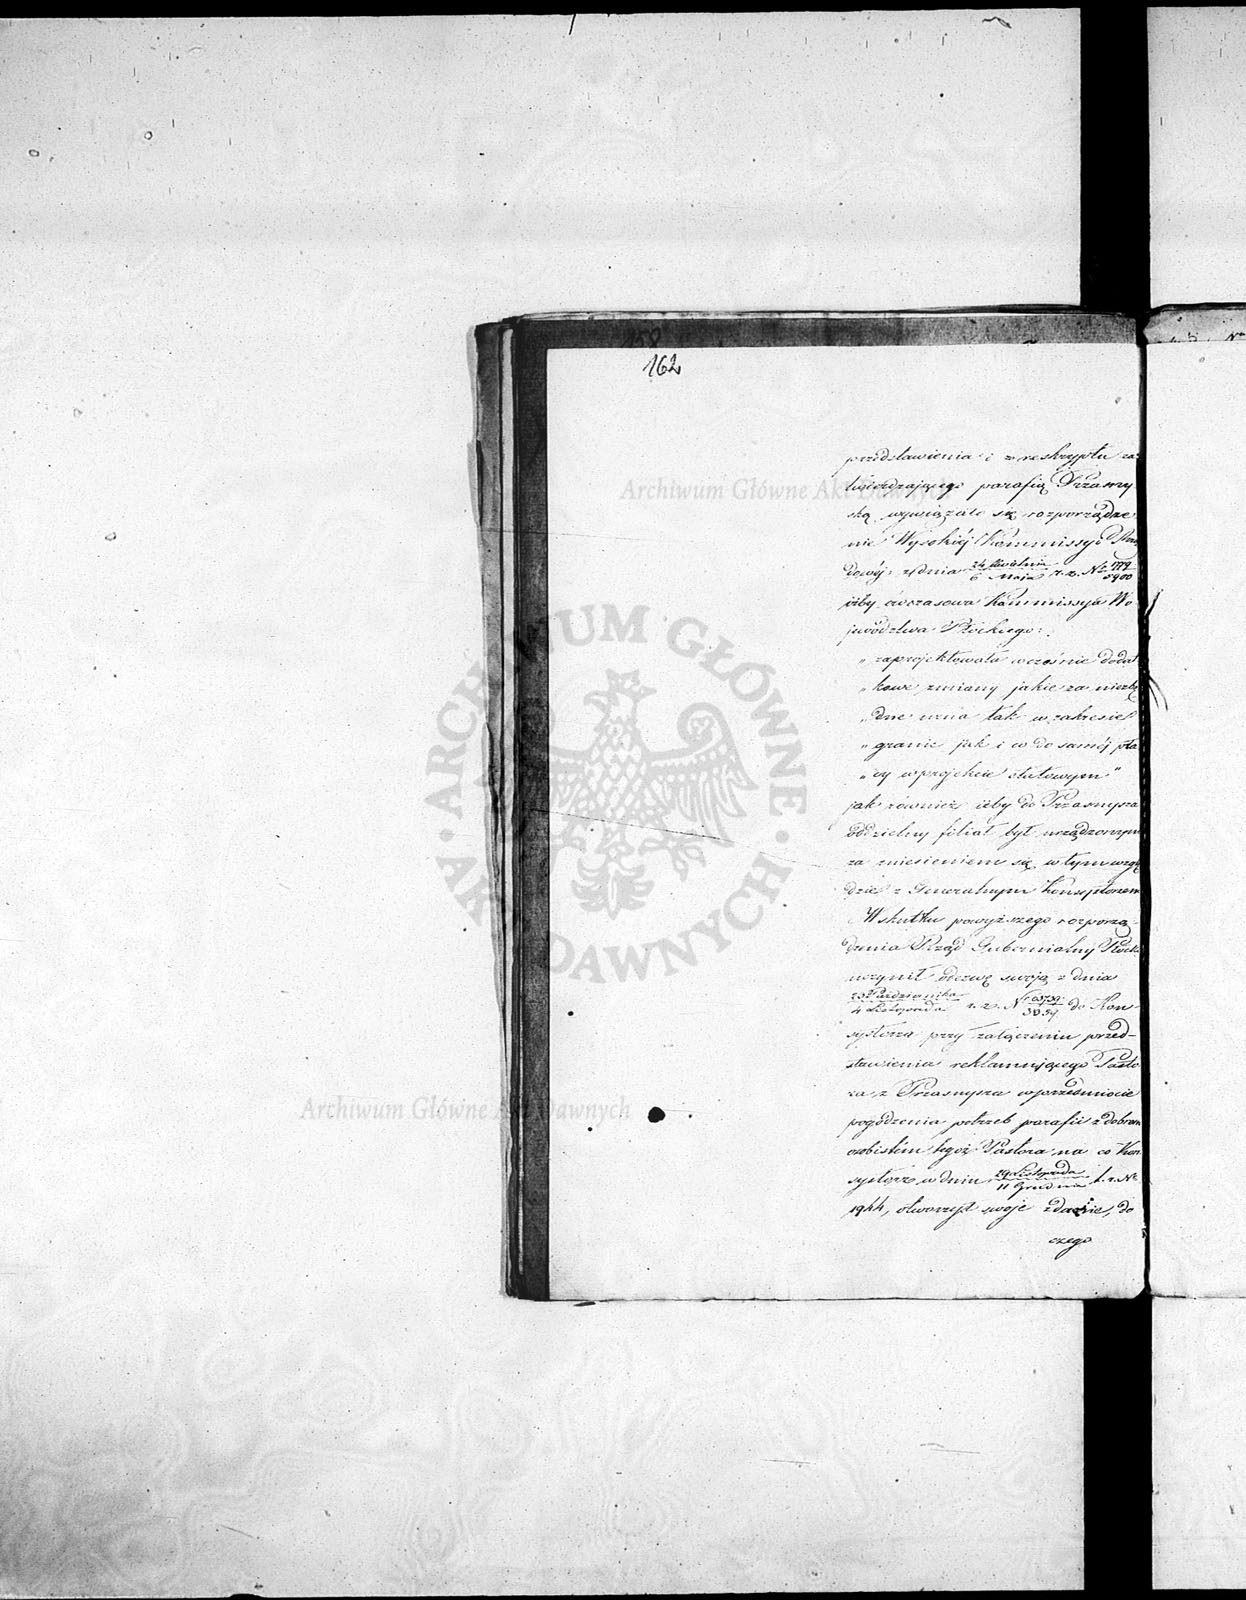 158
162
przedstawienia i z reskryptu za
twierdzającego parafią Przasny
ską wywiązało się rozporządze
nie Wysokiéj Kommissyi Rzą
dowéj z dnia 24 Kwietnia / 6 Maja r. z. No 779 / 5900
iżby ówczasowa Kommissya Wo
jewództwa Płockiego:
„ zaprojektowała wcześnie dodat
„ kowe zmiany jakie za niezbę
„ dne uzna tak w zakresie
„ granic jak i co do saméj pła
„ cy w projekcie etatowym"
jak również iżby do Przasnysza
oddzielny filiał był urządzonym
za zniesieniem się w tym wzglę
dzie z Generalnym Konsystorzem
Wskutku powyższego rozporzą
dzenia Rząd Gubernialny Płock
uczynił odezwę swoją z dnia
23 Października / 4 Listopada r. z. No do Kon
systorza przy załączeniu przed-
stawienia reklamującego Pasto
ra z Przasnysza w przedmiocie
pogodzenia potrzeb parafii z dobrem
osobistém tegoż Pastora na co Kon
systorz w dniu 29 Listopada / 11 Grudnia t. r. No
1944, otworzył swoje zdanie, do
czego
Archiwum Główne Akt Dawnych
Archiwum Główne Akt Dawnych
ARCHIWUM GŁÓWNE AKT DAWNYCH